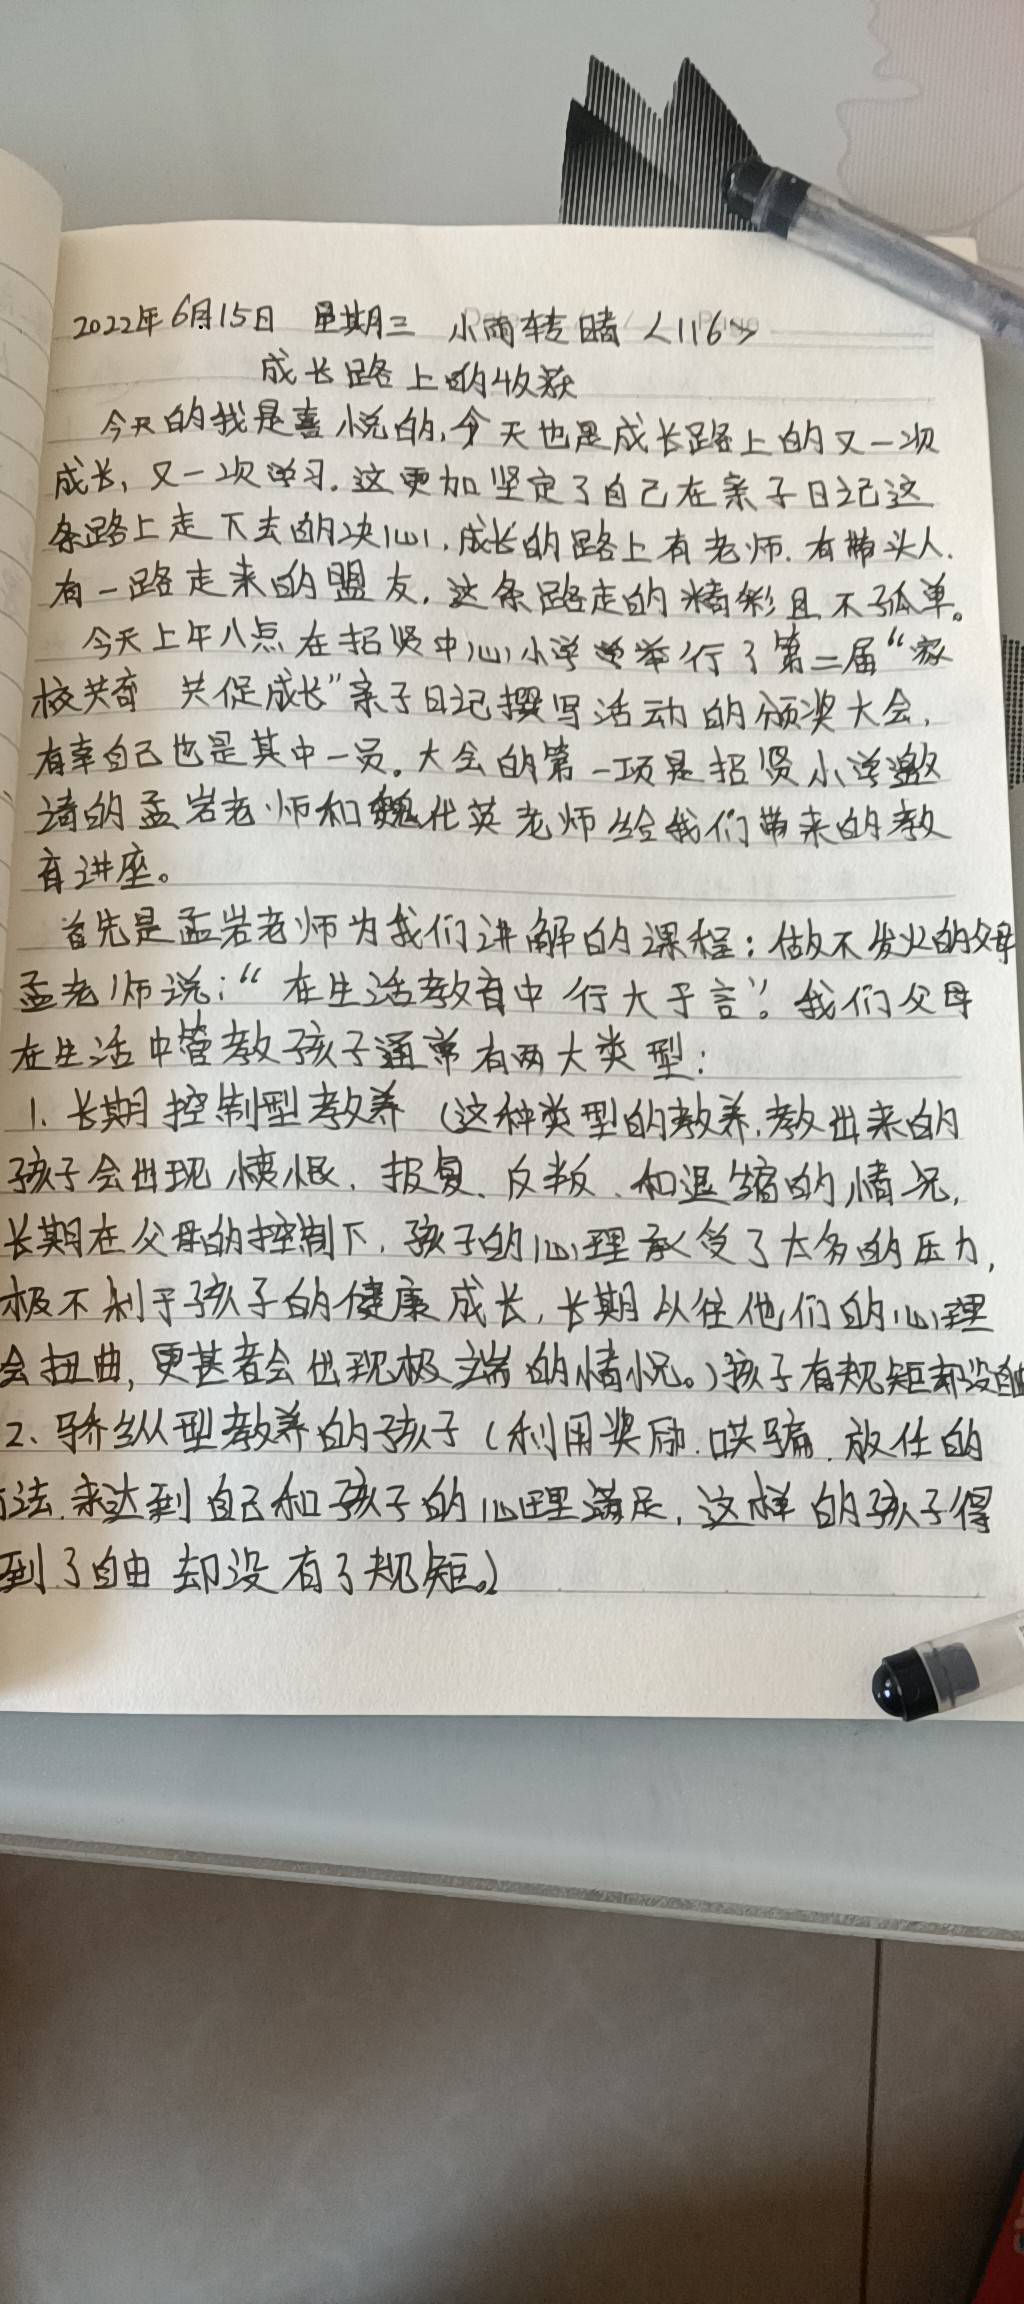 2022年6月15日 星期三 小雨转晴 <116>
成长路上的收获
今天的我是喜悦的,今天也是成长路上的又一次
成长,又一次学习.这更加坚定了自己在亲子日记这
条路上走下去的决心,成长的路上有老师.有带头人.
有一路走来的盟友,这条路走的精彩且不孤单。
今天上午八点在招贤中心小学举行了第二届“家
校共育 共促成长”亲子日记撰写活动的颁奖大会,
有幸自己也是其中一员。大会的第一项是招贤小学邀
请的孟岩老师和魏化英老师给我们带来的教
育讲座。
首先是孟岩老师为我们讲解的课程:做不发火的父母
孟老师说:“在生活教育中行大于言”。我们父母
在生活中管教孩子通常有两大类型:
1.长期控制型教养(这种类型的教养,教出来的
孩子会出现愤恨、报复、反叛、和退缩的情况,
长期在父母的控制下,孩子的心理承受了太多的压力,
极不利于孩子的健康成长,长期以往他们的心理
会扭曲,更甚者会出现极端的情况。)孩子有规矩却没自由
2、骄纵型教养的孩子(利用奖励.哄骗.放任的
方法.来达到自己和孩子的心理满足,这样的孩子得
到了自由却没有了规矩。)